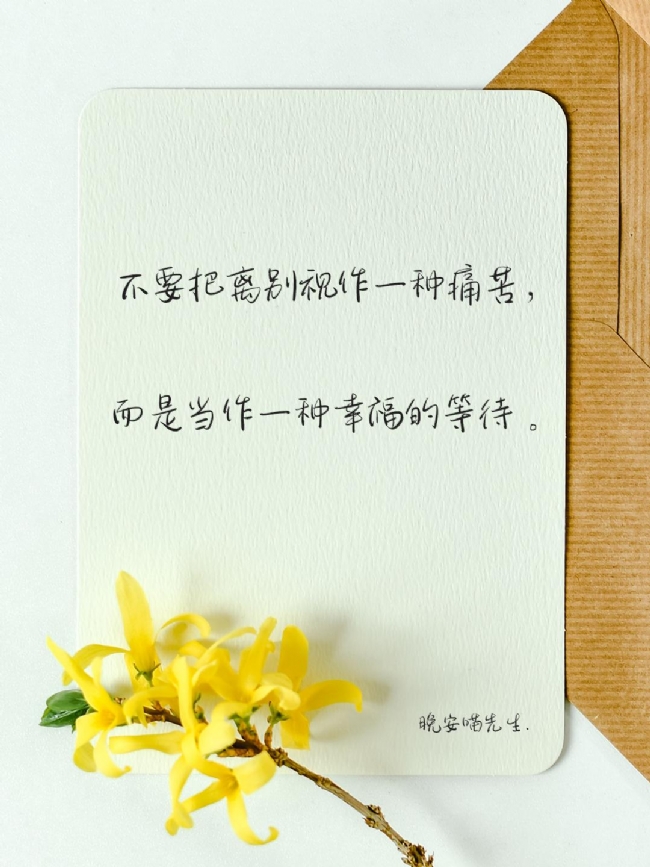 不要把离别视作一种痛苦，
而是当作一种幸福的等待。
晚安喵先生.